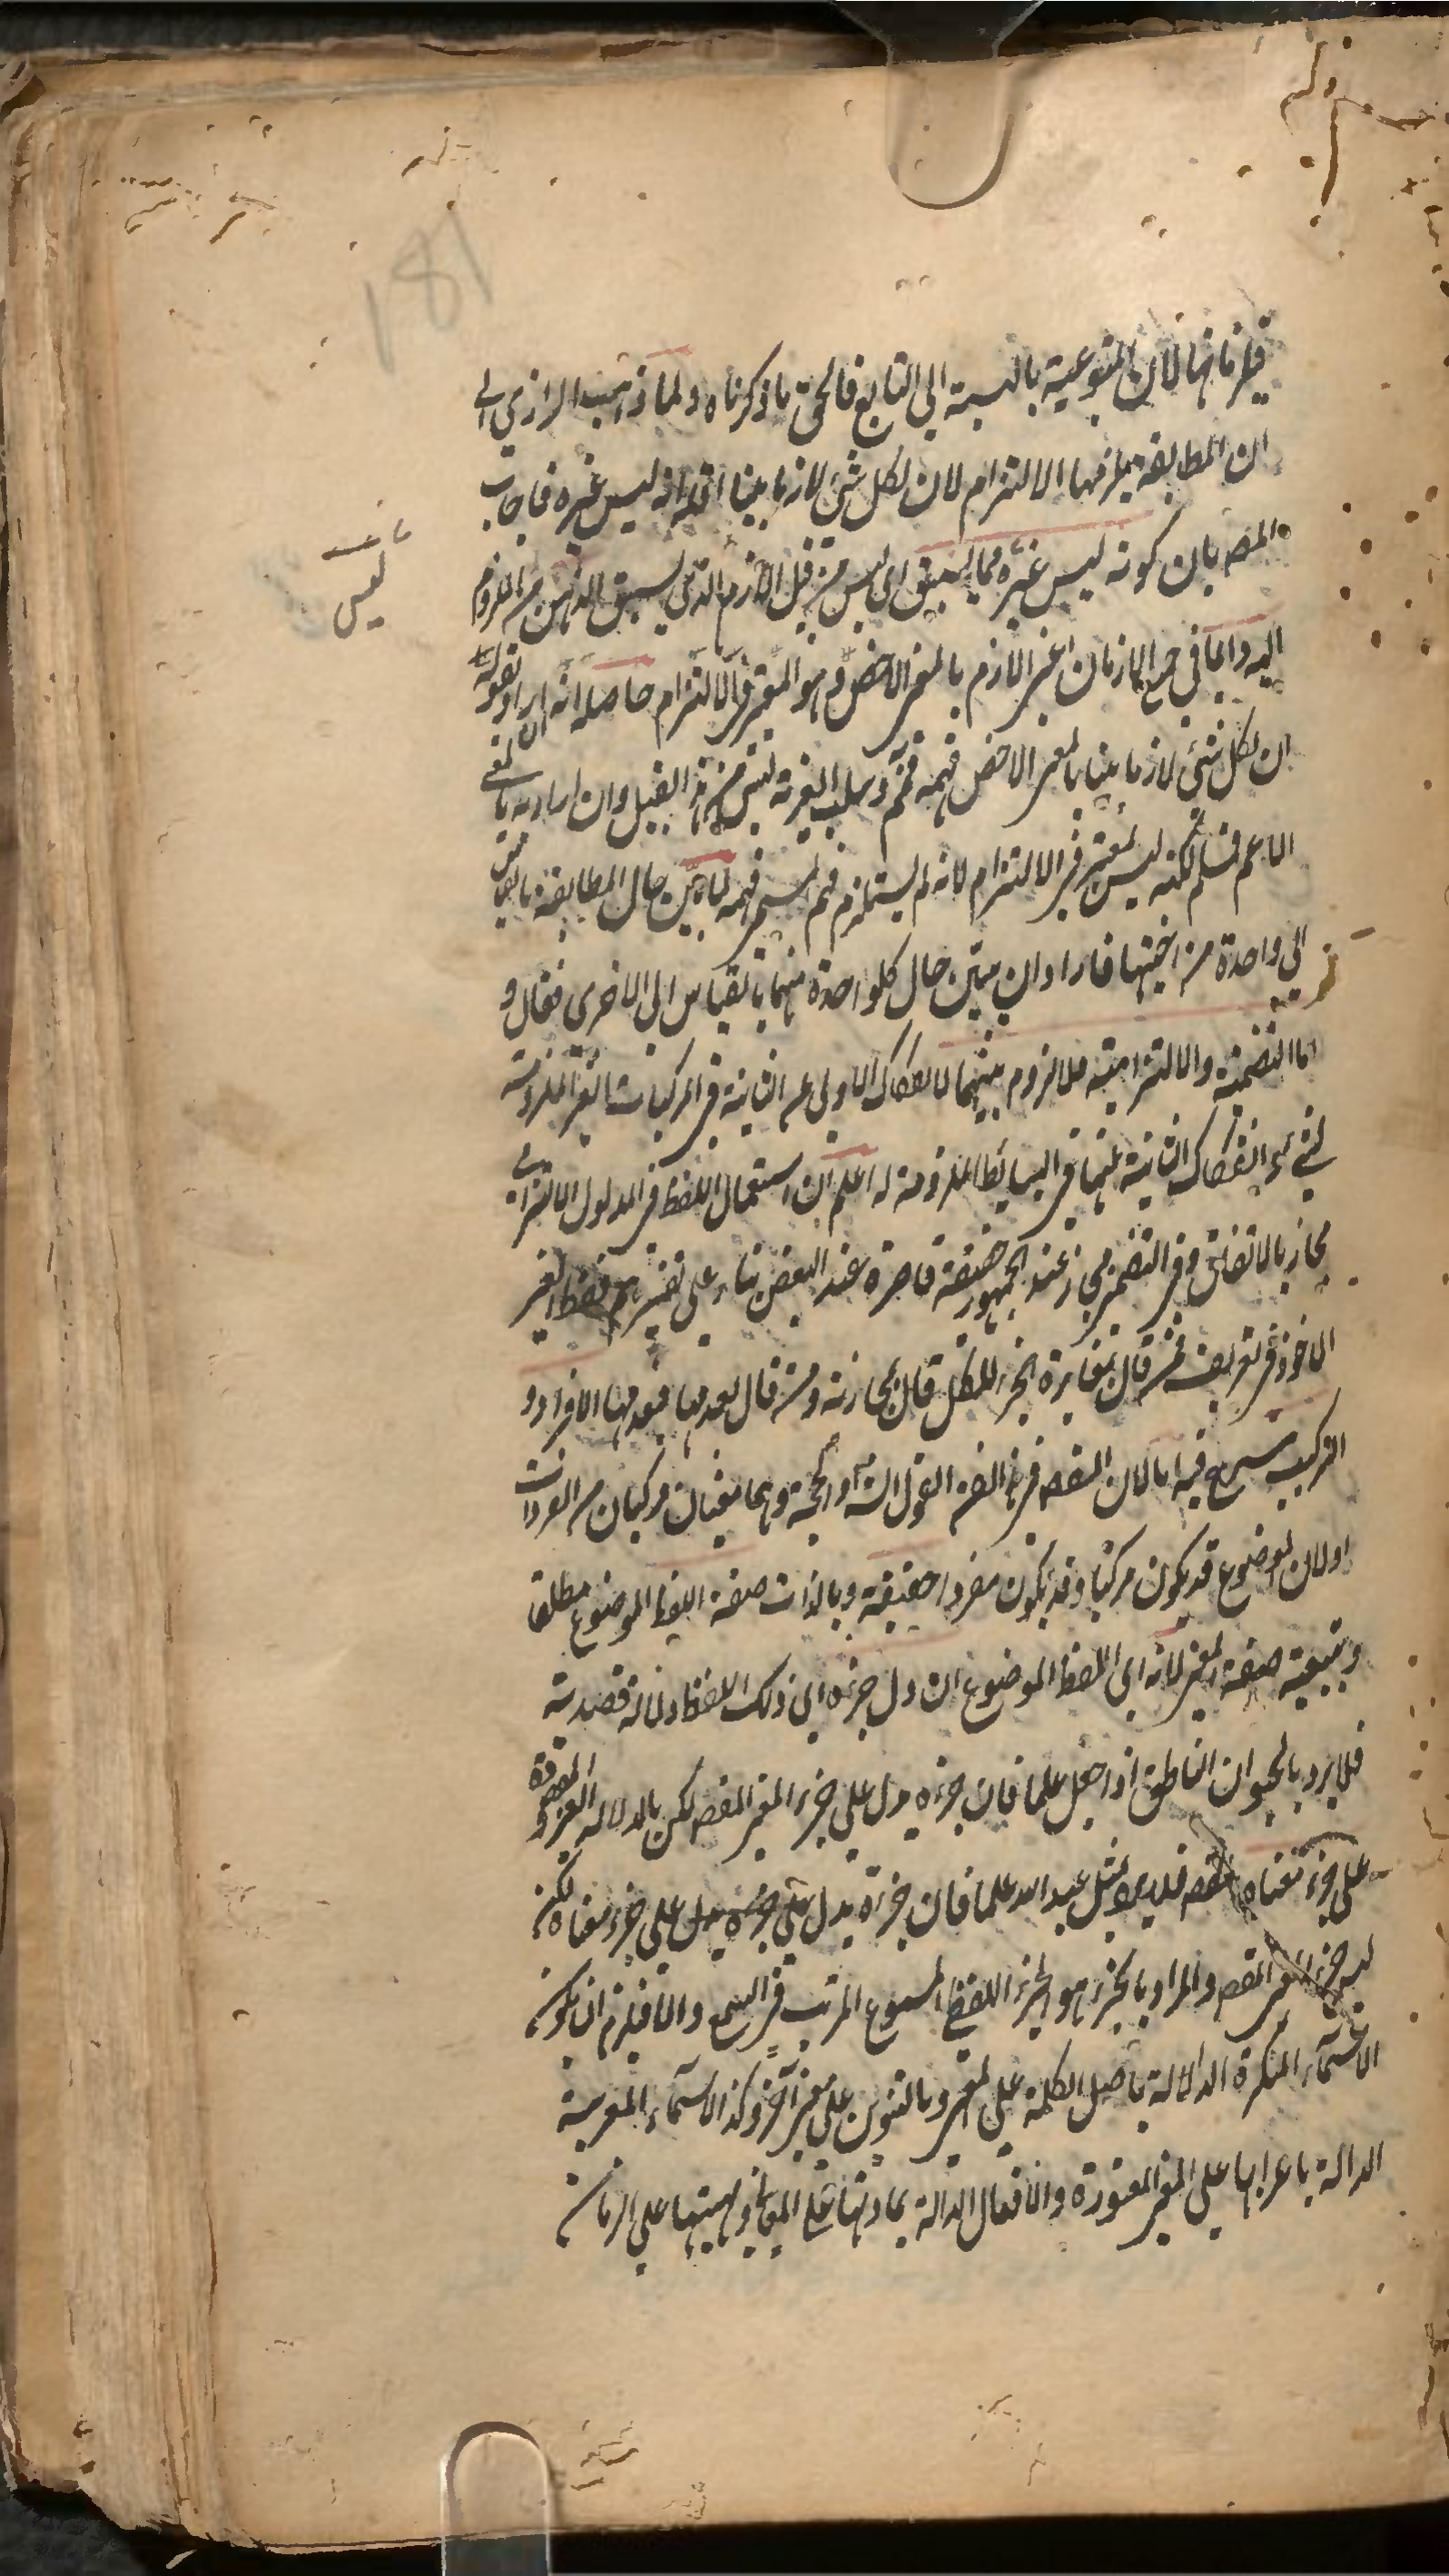 181
فيلزمانها لان المتبوعية بالنسبة الى التابع فالحق ما ذكرناه ولما ذهب الرازي الى
ان المطابقة يلزمها الالتزام لان لكل شئ لازما بينا اقله انه ليس غيره فاجاب
المصه بان كونه ليس غيره مما ليس يسبق اى ليس من قبل اللازم الذي يسبق الذهن من الملزوم
اليه دائما في جميع الازمان اعنى اللازم بالمعنى الاخص وهو المعتبر في الالتزام حاصله انه ان اراد بقوله
ان لكل شئ لازما بينا بالمعنى الاخص فهمه فهم وسلب الغيرية ليس من هذا القبيل وان اراد به بالمعنى
الاعم فمسلم لكنه ليس بمعتبر في الالتزام لانه لم يستلزم فهم المسمى فهمه لما بين حال المطابقة بالقياس
الى واحدة من اختيها فاراد ان يبين حال كلواحدة منهما بالقياس الى الاخرى فقال و
اما التضمنية والالتزامية فلا لزوم بينهما لانفكاك الاولى عن الثانية في المركبات الغير الملزومة
لشئ وانفكاك الثانية عنها في البسائط الملزومة له اعلم ان استعمال اللفظ في المدلول الالتزامي
مجاز بالاتفاق وفي التضمن مجاز عند الجمهور حقيقة قاصرة عند البعض بناء على تفسيرهم لفظ الغير
الماخوذ في تعريف فمن قال بمغايرة الجزء للكل قال بمجازيته ومن قال بعدمها فبعدمها الافراد و
التركيب شرع فيهما لان المقصه في هذا الفن القول الشارح او الحجة وهما معنيان مركبان من المفردات
اولان الموضوع قد يكون مركبا وقد يكون مفردا حقيقة وبالذات صفة اللفظ الموضوع مطلقا
وبتبعية صفة المعنى لانه اى اللفظ الموضوع ان دل جزءه اى ذلك اللفظ دلالة قصدية
فلا يرد بالحيوان الناطق اذا جعل علما فان جزءه يدل على جزء المعنى المقصه لكن بالدلالة الغير المقصودة
على جزء معناه المقصه فلا يرد بمثل عبد الله علما فان جزءه يدل على جزءه يدل على جزء معناه لكن
ليس جزء المعنى المقصه والمراد بالجزء هو الجزء اللفظ المسموع المرتب في السمع والا فيلزم ان يكون
الاسماء المنكرة الدلالة باصل الكلمة على المعنى وبالتنوين على معنى آخر وكذا الاسماء المعربة
الدالة باعرابها على المعنى المعتورة والافعال الدالة بمادتها على المعانى وبهيئتها على الزمان